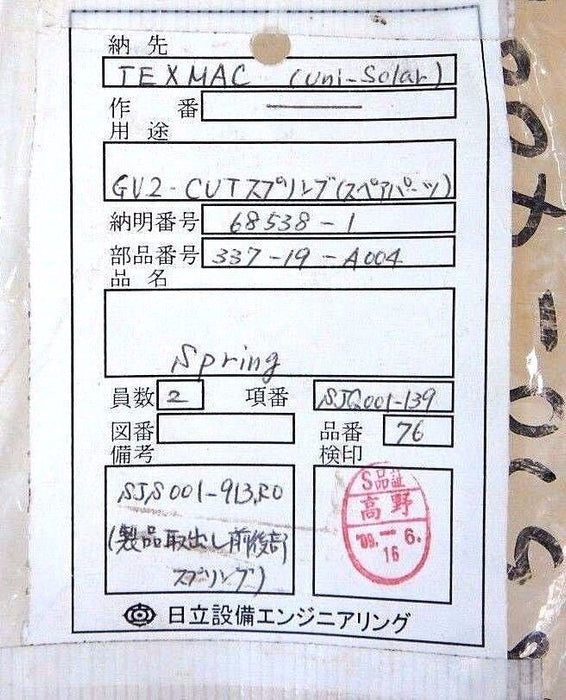 納先
TEXMAC (uni-Solar)
作番 ―
用途
GV2-CUTスプリング(スペアパーツ)
納明番号 68538-1
部品番号 337-19-A004
品名
Spring
員数 2 項番 SJQ001-139
図番 品番 76
備考 検印
SJS001-913,R0
(製品取出し前後部
スプリング)
S品証
高野
'09.-6.
16
日立設備エンジニアリング